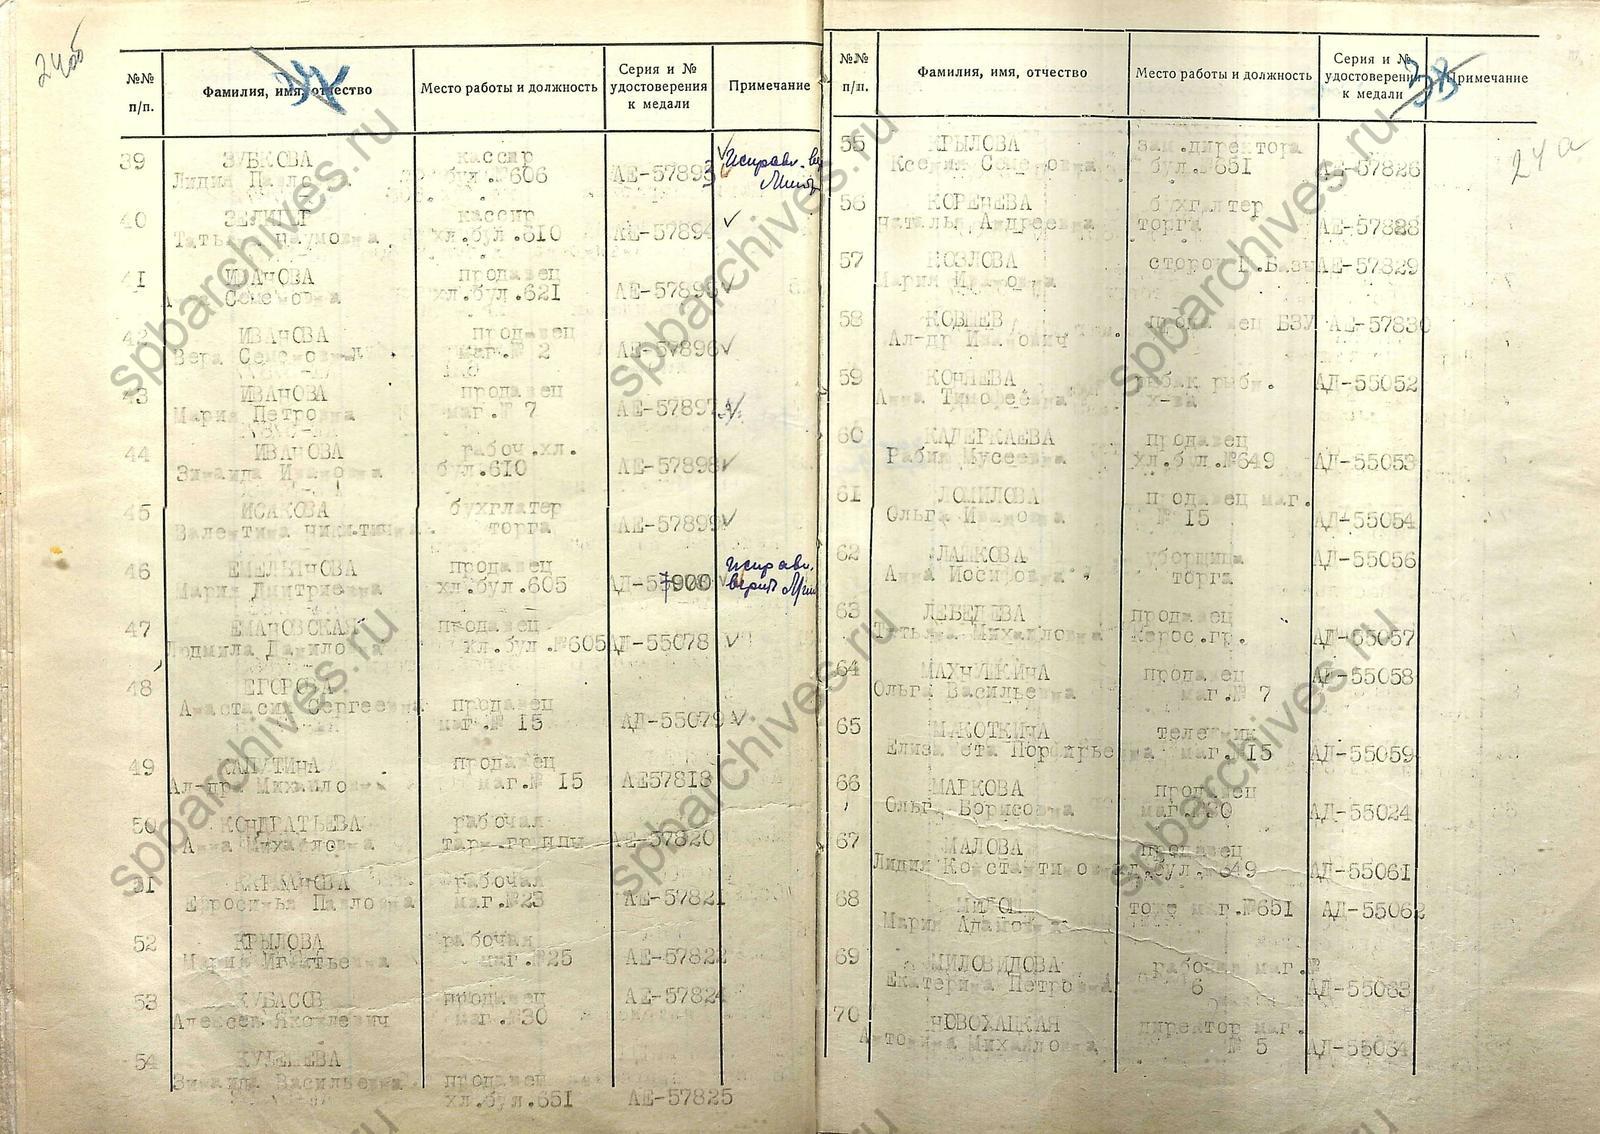 24об
№№ п/п.
Фамилия, имя, отчество
Место работы и должность
Серия и № удостоверения к медали
Примечание
39 ЗУБКОВА кассир
Лидия Павловна бул.№606 АЕ-57893 Исправл.
40 кассир
Татьяна Наумовна хл.бул.610 АЕ-57894
41 ИВАНОВА продавец
Семеновна хл.бул.621 АЕ-57895
42 ИВАНОВА продавец
Вера Семеновна маг.№ 2 АЕ-57896
43 ИВАНОВА продавец
Мария Петровна маг.№ 7 АЕ-57897
44 ИВАНОВА рабоч.хл.
Зинаида Ивановна бул.610 АЕ-57898
45 ИСАКОВА бухглатер
Валентина Никитична торга АЕ-57899
46 ЕМЕЛЬЯНОВА продавец Исправл.
Мария Дмитриевна хл.бул.605
47 ЕМАНОВСКАЯ продавец
Людмила Даниловна хл.бул.№605 АД-55078
48 ЕГОРОВА
Анастасия Сергеевна продавец
маг.№ 15 АД-55079
49 КАЛУГИНА продавец
Ал-дра Михайловна маг.№ 15 АЕ57818
50 КОНДРАТЬЕВА рабочая
Анна Михайловна АЕ-57820
51 рабочая
Ефросинья Павловна маг.№23 АЕ-57821
52 КРЫЛОВА рабочая
Мария Игнатьевна маг.№25 АЕ-57822
53 КУБАСОВ продавец АЕ-57824
Алексей Яковлевич маг.№30
54 КУЛЕШЕВА
Зинаида Васильевна продавец
хл.бул.651 АЕ-57825
№№ п/п.
Фамилия, имя, отчество
Место работы и должность
Серия и № удостоверения к медали
Примечание
24а
55 КРЫЛОВА зам.директора
Ксения Семеновна бул.№651 АЕ-57826
56 КОРЕНЕВА бухгалтер
Наталья Андреевна торга АЕ-57828
57 КОЗЛОВА сторож П.Базы АЕ-57829
Мария Ивановна
58 продавец БЗУ АЕ-57830
Ал-др Иванович
59 КОНЯЕВА рыбак рыбн. АД-55052
Анна Тимофеевна х-ва
60 КАДЕРКАЕВА продавец
Рабия Мусеевна хл.бул.№649 АД-55053
61 ЛОМИЛОВА продавец маг.
Ольга Ивановна № 15 АД-55054
62 ЛАШКОВА уборщица АД-55056
Анна Иосифовна торга
63 ЛЕБЕДЕВА продавец
Татьяна Михайловна керос.гр. АД-55057
64 МАХНУШКИНА продавец АД-55058
Ольга Васильевна маг.№ 7
65 МАКОТКИНА
Елизавета Порфирьевна маг.15 АД-55059
66 МАРКОВА продавец
Ольга Борисовна маг.№30 АД-55024
67 МАЛОВА продавец
Лидия Константиновна хл.бул.№649 АД-55061
68 тоже маг.№651 АД-55062
Мария Адамовна
69 МИЛОВИДОВА рабочая маг.№
Екатерина Петровна 6 АД-55063
70 НОВОХАЦКАЯ директор маг.
Антонина Михайловна № 5 АД-55064
spbarchives.ru